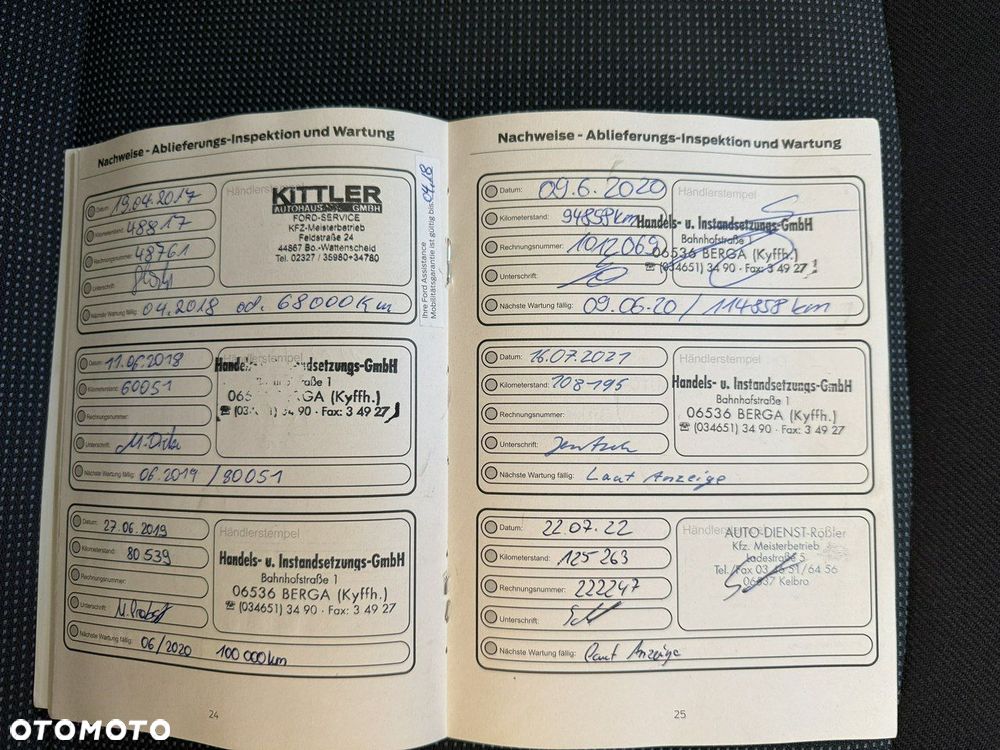 Nachweise - Ablieferungs-Inspektion und Wartung
Datum: 19.04.2017
Kilometerstand: 48817
Rechnungsnummer: 48761
Unterschrift:
Nächste Wartung fällig: 04.2018 od. 68000 Km
Händlerstempel
KITTLER
AUTOHAUS GMBH
FORD-SERVICE
KFZ-Meisterbetrieb
Feldstraße 24
44867 Bo.-Wattenscheid
Tel. 02327 / 35980+34780
Ihre Ford Assistance
Mobilitätsgarantie ist gültig bis 04.18
Datum: 11.06.2018
Kilometerstand: 60051
Rechnungsnummer:
Unterschrift:
Nächste Wartung fällig: 06.2019 / 80051
Händlerstempel
Handels- u. Instandsetzungs-GmbH
BERGA (Kyffh.)
34 90 · Fax: 3 49 27
Datum: 27.06.2019
Kilometerstand: 80539
Rechnungsnummer:
Unterschrift: M. Probst
Nächste Wartung fällig: 06/2020 100 000km
Händlerstempel
Handels- u. Instandsetzungs-GmbH
Bahnhofstraße 1
06536 BERGA (Kyffh.)
☎ (034651) 34 90 · Fax: 3 49 27
24
Nachweise - Ablieferungs-Inspektion und Wartung
Datum: 09.6.2020
Kilometerstand: 94858km
Rechnungsnummer: 1012069
Unterschrift:
Nächste Wartung fällig: 09.06.20 / 114858 km
Händlerstempel
Handels- u. Instandsetzungs-GmbH
Bahnhofstraße 1
06536 BERGA (Kyffh.)
☎ (034651) 34 90 · Fax: 3 49 27
Datum: 16.07.2021
Kilometerstand: 108-195
Rechnungsnummer:
Unterschrift: Jentsch
Nächste Wartung fällig: Laut Anzeige
Händlerstempel
Handels- u. Instandsetzungs-GmbH
Bahnhofstraße 1
06536 BERGA (Kyffh.)
☎ (034651) 34 90 · Fax: 3 49 27
Datum: 22.07.22
Kilometerstand: 125 263
Rechnungsnummer: 222247
Unterschrift:
Nächste Wartung fällig: Laut Anzeige
Händlerstempel
AUTO-DIENST-Rößler
Kfz. Meisterbetrieb
Ladestraße 5
06537 Kelbra
25
OTOMOTO